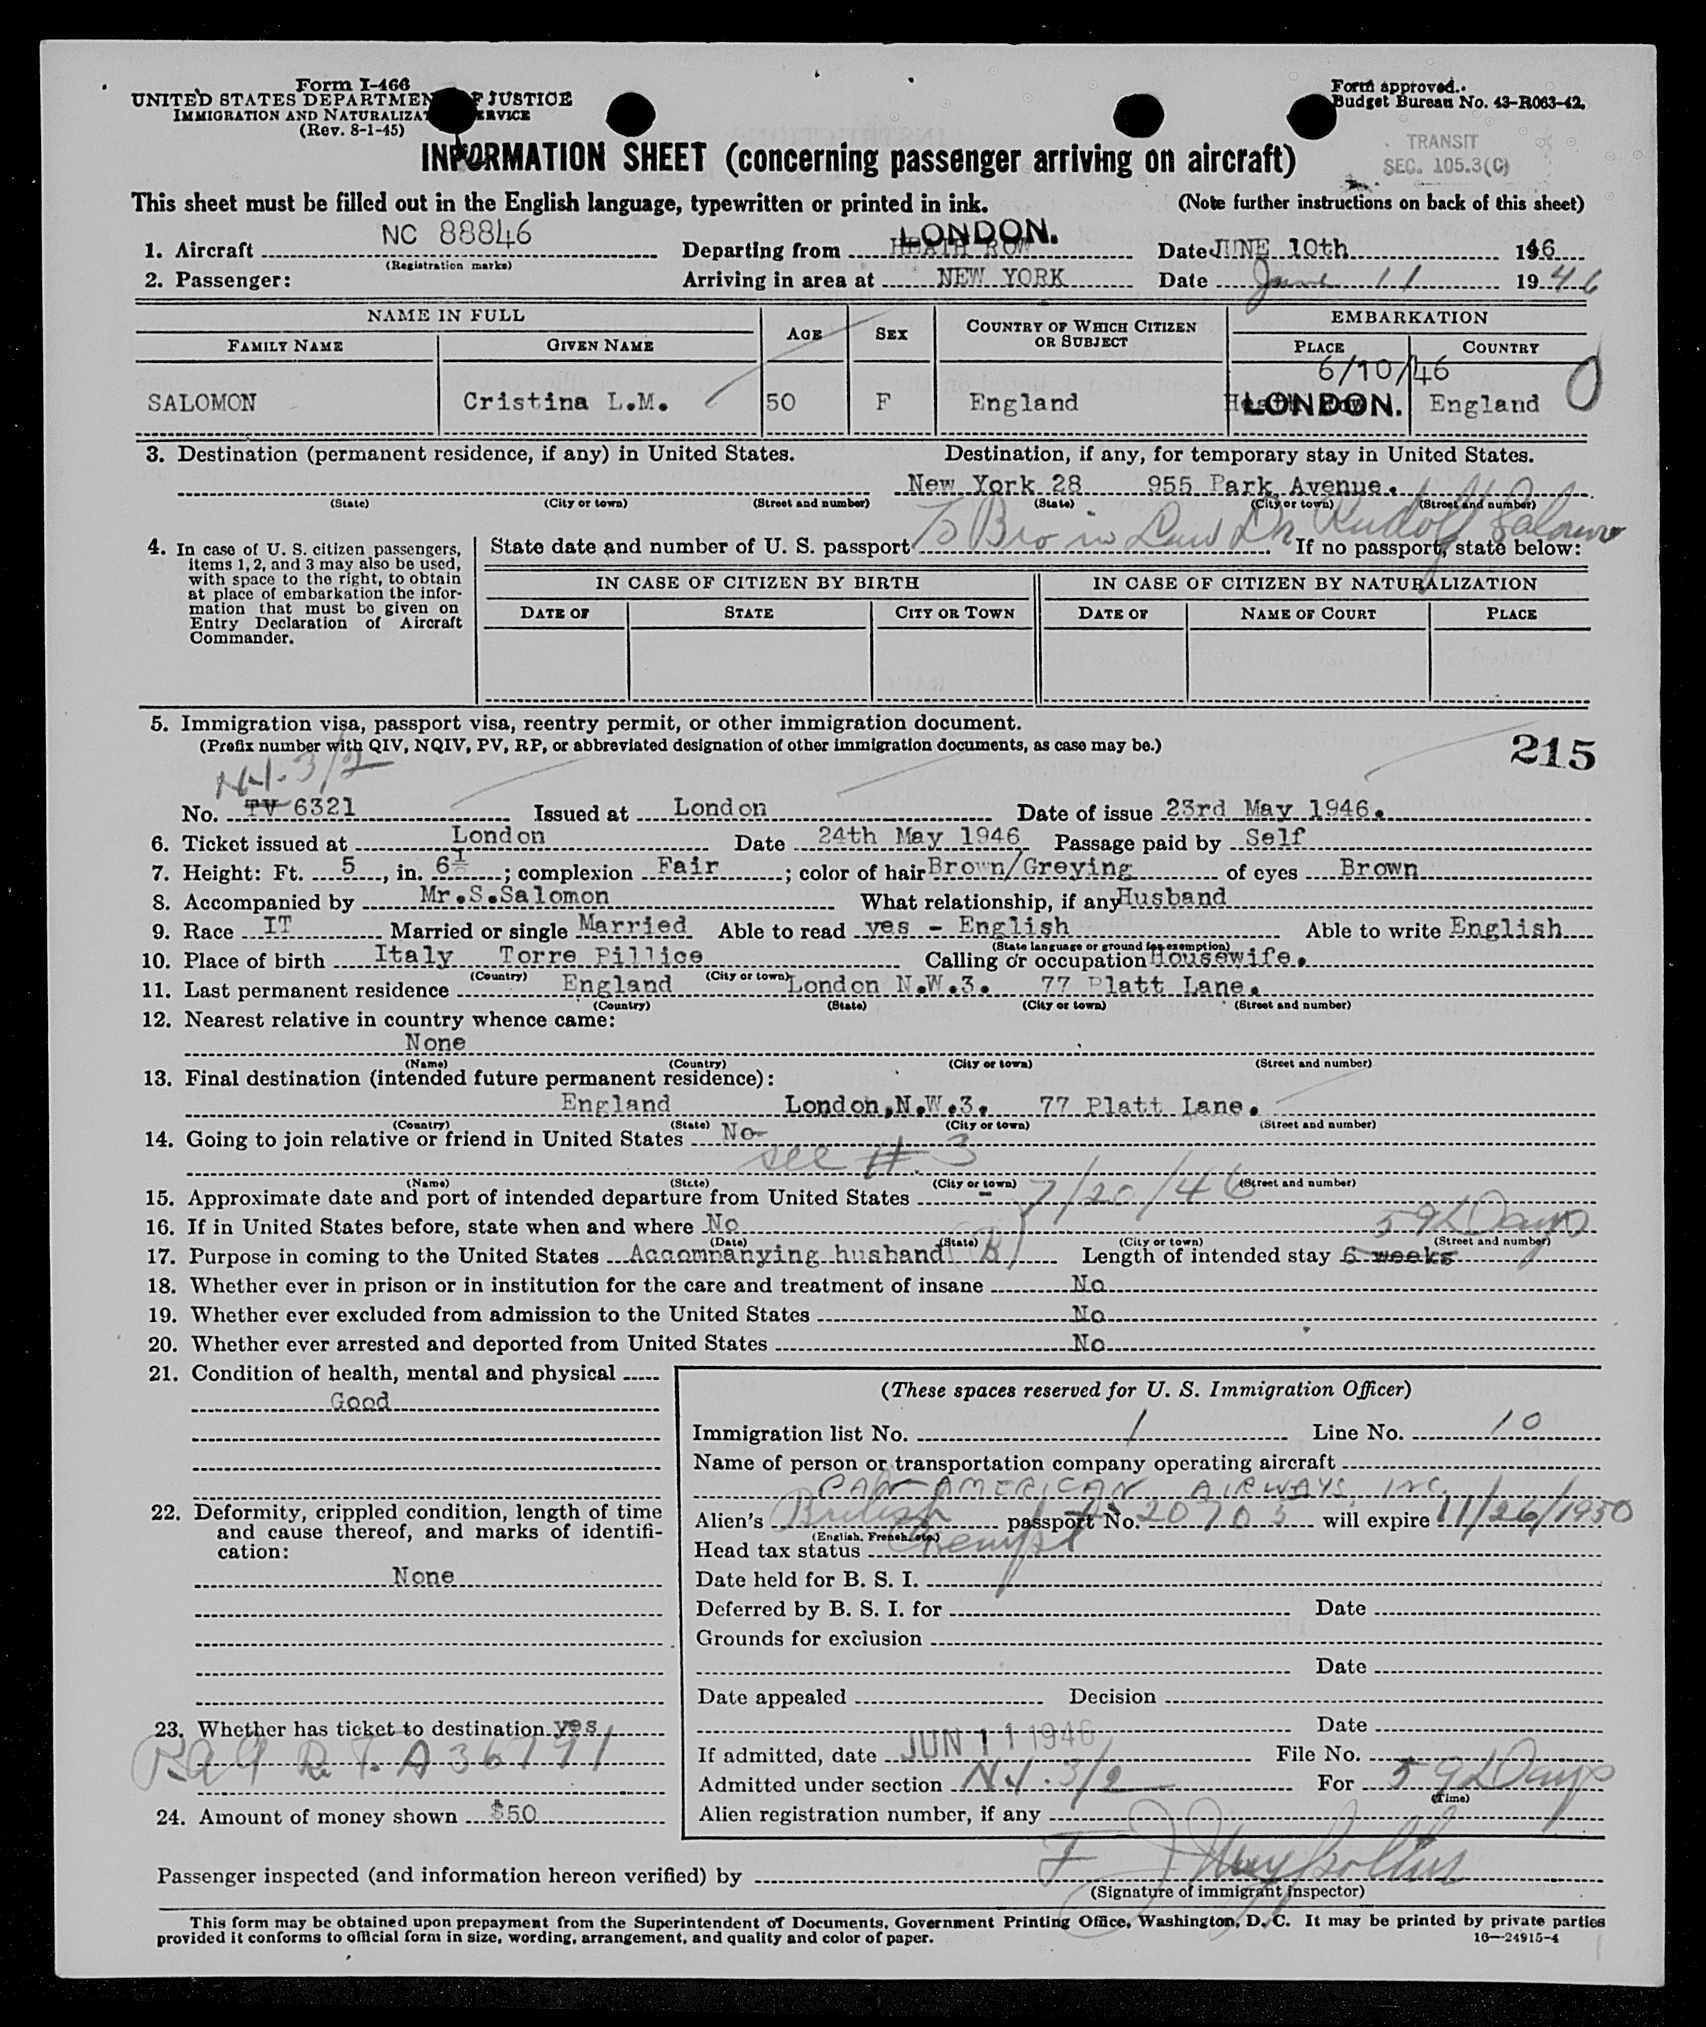 Form I-466
UNITED STATES DEPARTMENT OF JUSTICE
IMMIGRATION AND NATURALIZATION SERVICE
(Rev. 8-1-45)
Form approved.
Budget Bureau No. 43-R063-42.
TRANSIT
SEC. 105.3(C)
INFORMATION SHEET (concerning passenger arriving on aircraft)
This sheet must be filled out in the English language, typewritten or printed in ink. (Note further instructions on back of this sheet)
1. Aircraft NC 88846 Departing from HEATH ROW LONDON. Date JUNE 10th 1946
(Registration marks)
2. Passenger: Arriving in area at NEW YORK Date June 11 1946
NAME IN FULL AGE SEX COUNTRY OF WHICH CITIZEN OR SUBJECT EMBARKATION
FAMILY NAME GIVEN NAME PLACE COUNTRY
6/10/46
SALOMON Cristina L.M. 50 F England LONDON. England 0
3. Destination (permanent residence, if any) in United States. Destination, if any, for temporary stay in United States.
New York 28 955 Park Avenue.
(State) (City or town) (Street and number) (State) (City or town) (Street and number)
To Bro in Law Dr Rudolf Salomon
4. In case of U. S. citizen passengers, items 1, 2, and 3 may also be used, with space to the right, to obtain at place of embarkation the information that must be given on Entry Declaration of Aircraft Commander.
State date and number of U. S. passport If no passport, state below:
IN CASE OF CITIZEN BY BIRTH IN CASE OF CITIZEN BY NATURALIZATION
DATE OF STATE CITY OR TOWN DATE OF NAME OF COURT PLACE
5. Immigration visa, passport visa, reentry permit, or other immigration document.
(Prefix number with QIV, NQIV, PV, RP, or abbreviated designation of other immigration documents, as case may be.)
215
NI. 3/2
No. TV 6321 Issued at London Date of issue 23rd May 1946.
6. Ticket issued at London Date 24th May 1946 Passage paid by Self
7. Height: Ft. 5, in. 6½; complexion Fair; color of hair Brown/Greying of eyes Brown
8. Accompanied by Mr.S.Salomon What relationship, if any Husband
9. Race IT Married or single Married Able to read yes - English Able to write English
(State language or ground for exemption)
10. Place of birth Italy Torre Pillice Calling or occupation Housewife.
(Country) (City or town)
11. Last permanent residence England London N.W.3. 77 Platt Lane.
(Country) (State) (City or town) (Street and number)
12. Nearest relative in country whence came:
None
(Name) (Country) (City or town) (Street and number)
13. Final destination (intended future permanent residence):
England London,N.W.3. 77 Platt Lane.
(Country) (State) (City or town) (Street and number)
14. Going to join relative or friend in United States No
see # 3
(Name) (State) (City or town) (Street and number)
15. Approximate date and port of intended departure from United States - 7/20/46
16. If in United States before, state when and where No
(Date) (State) (City or town) (Street and number)
59 Days
17. Purpose in coming to the United States Accompanying husband (B) Length of intended stay 6 weeks
18. Whether ever in prison or in institution for the care and treatment of insane No
19. Whether ever excluded from admission to the United States No
20. Whether ever arrested and deported from United States No
21. Condition of health, mental and physical
Good
22. Deformity, crippled condition, length of time and cause thereof, and marks of identification:
None
23. Whether has ticket to destination yes
R.T. A 36791
24. Amount of money shown $50
(These spaces reserved for U. S. Immigration Officer)
Immigration list No. 1 Line No. 10
Name of person or transportation company operating aircraft
PAN AMERICAN AIRWAYS, INC.
Alien's British passport No. 20703 will expire 11/26/1950
(English, French, etc.)
Head tax status Exempt
Date held for B. S. I.
Deferred by B. S. I. for Date
Grounds for exclusion
Date
Date appealed Decision
Date
If admitted, date JUN 11 1946 File No.
Admitted under section NI. 3/2 For 59 Days
(Time)
Alien registration number, if any
Passenger inspected (and information hereon verified) by
(Signature of immigrant inspector)
This form may be obtained upon prepayment from the Superintendent of Documents, Government Printing Office, Washington, D. C. It may be printed by private parties
provided it conforms to official form in size, wording, arrangement, and quality and color of paper. 16—24915-4